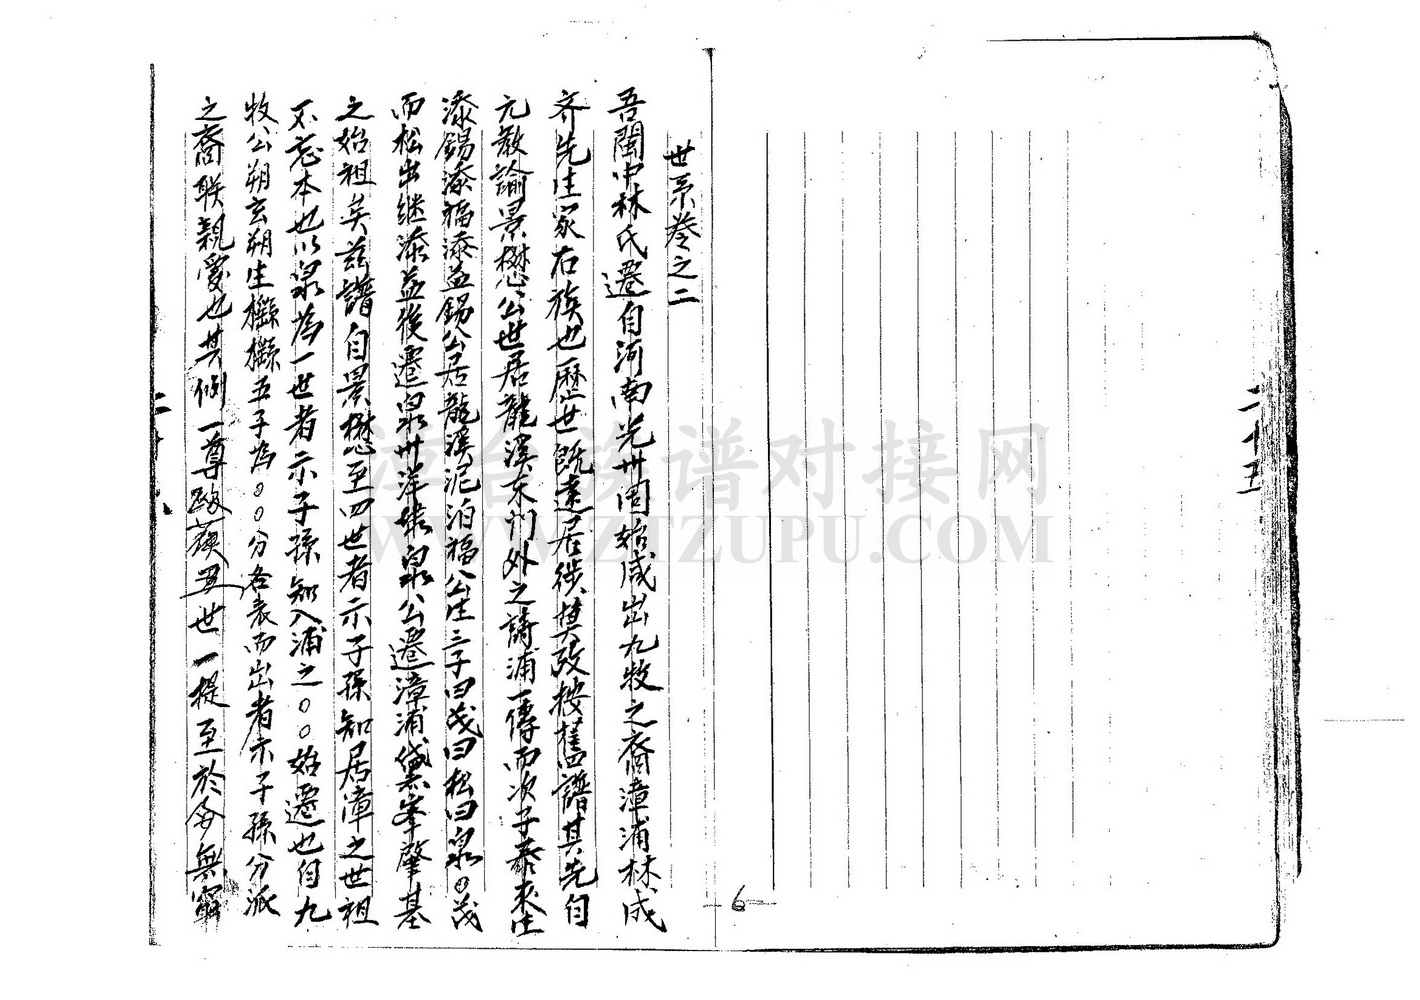 二十五
世系卷之二
吾閩中林氏遷自河南光州固始咸出九牧之裔漳浦林成
齐先生家右族也歷世既遠居徙莫攷按舊譜其先自
元教諭景懋公世居龍溪东門外之詩浦一傳而次子泰来生
添錫添福添益錫公居龍溪泥泊福公生三子曰茂曰松曰泉。茂
而松出继添益後遷泉州洋
泉公遷漳浦黛峯肇基
之始祖矣兹譜自景懋至四世者示子孫知居漳之世祖
不忘本也以泉為一世者示子孫知入浦之。。始遷也自九
牧公朔玄朔生橓橓五子為。。。分各表而出者示子孫分派
之裔联親愛也其例一尊歐蘇五世一提至於無窮
6
漳台族谱对接网
WWW.ZTZUPU.COM